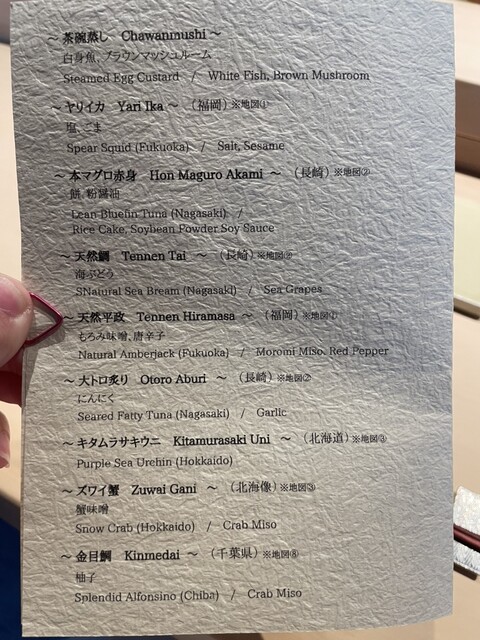 ～ 茶碗蒸し Chawanmushi ～
白身魚、ブラウンマッシュルーム
Steamed Egg Custard / White Fish, Brown Mushroom
～ ヤリイカ Yari Ika ～ （福岡）※地図①
塩、ごま
Spear Squid (Fukuoka) / Salt, Sesame
～ 本マグロ赤身 Hon Maguro Akami ～ （長崎）※地図②
餅、粉醤油
Lean Bluefin Tuna (Nagasaki) /
Rice Cake, Soybean Powder Soy Sauce
～ 天然鯛 Tennen Tai ～ （長崎）※地図②
海ぶどう
SNatural Sea Bream (Nagasaki) / Sea Grapes
～ 天然平政 Tennen Hiramasa ～ （福岡）※地図①
もろみ味噌、唐辛子
Natural Amberjack (Fukuoka) / Moromi Miso, Red Pepper
～ 大トロ炙り Otoro Aburi ～ （長崎）※地図②
にんにく
Seared Fatty Tuna (Nagasaki) / Garlic
～ キタムラサキウニ Kitamurasaki Uni ～ （北海道）※地図③
Purple Sea Urchin (Hokkaido)
～ ズワイ蟹 Zuwai Gani ～ （北海像）※地図③
蟹味噌
Snow Crab (Hokkaido) / Crab Miso
～ 金目鯛 Kinmedai ～ （千葉県）※地図⑧
柚子
Splendid Alfonsino (Chiba) / Crab Miso